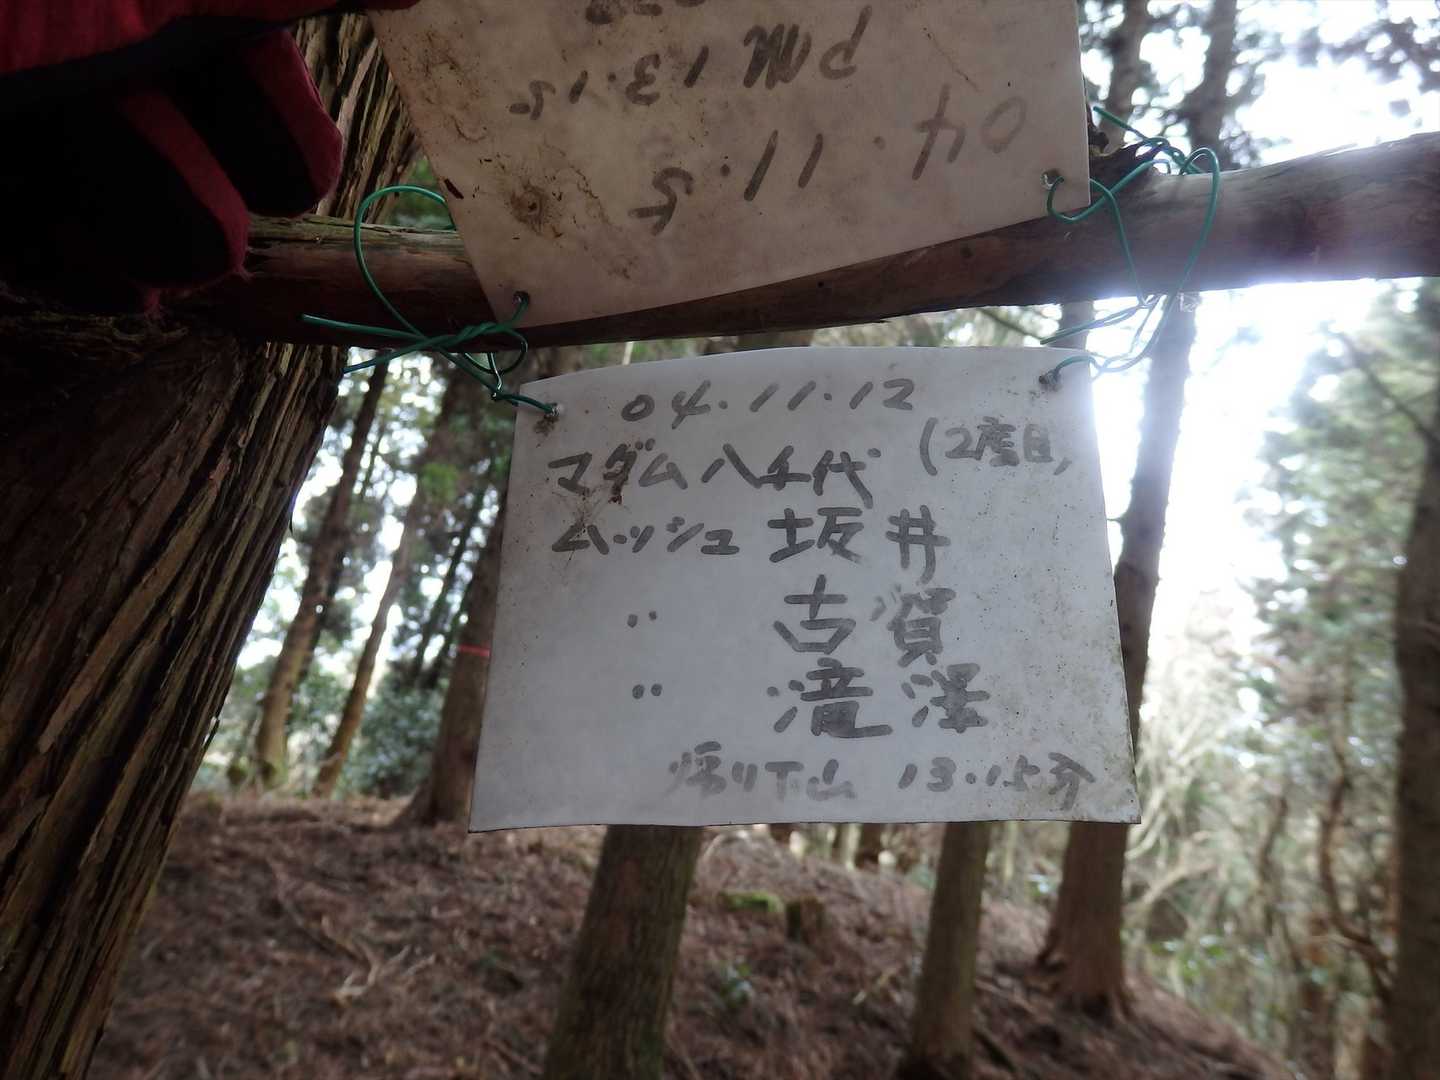 04.11.5
PM 13.15
04.11.12
マダム八千代 (2度目)
ムッシュ 坂井
〃 古賀
〃 滝澤
帰り下山 13.15分